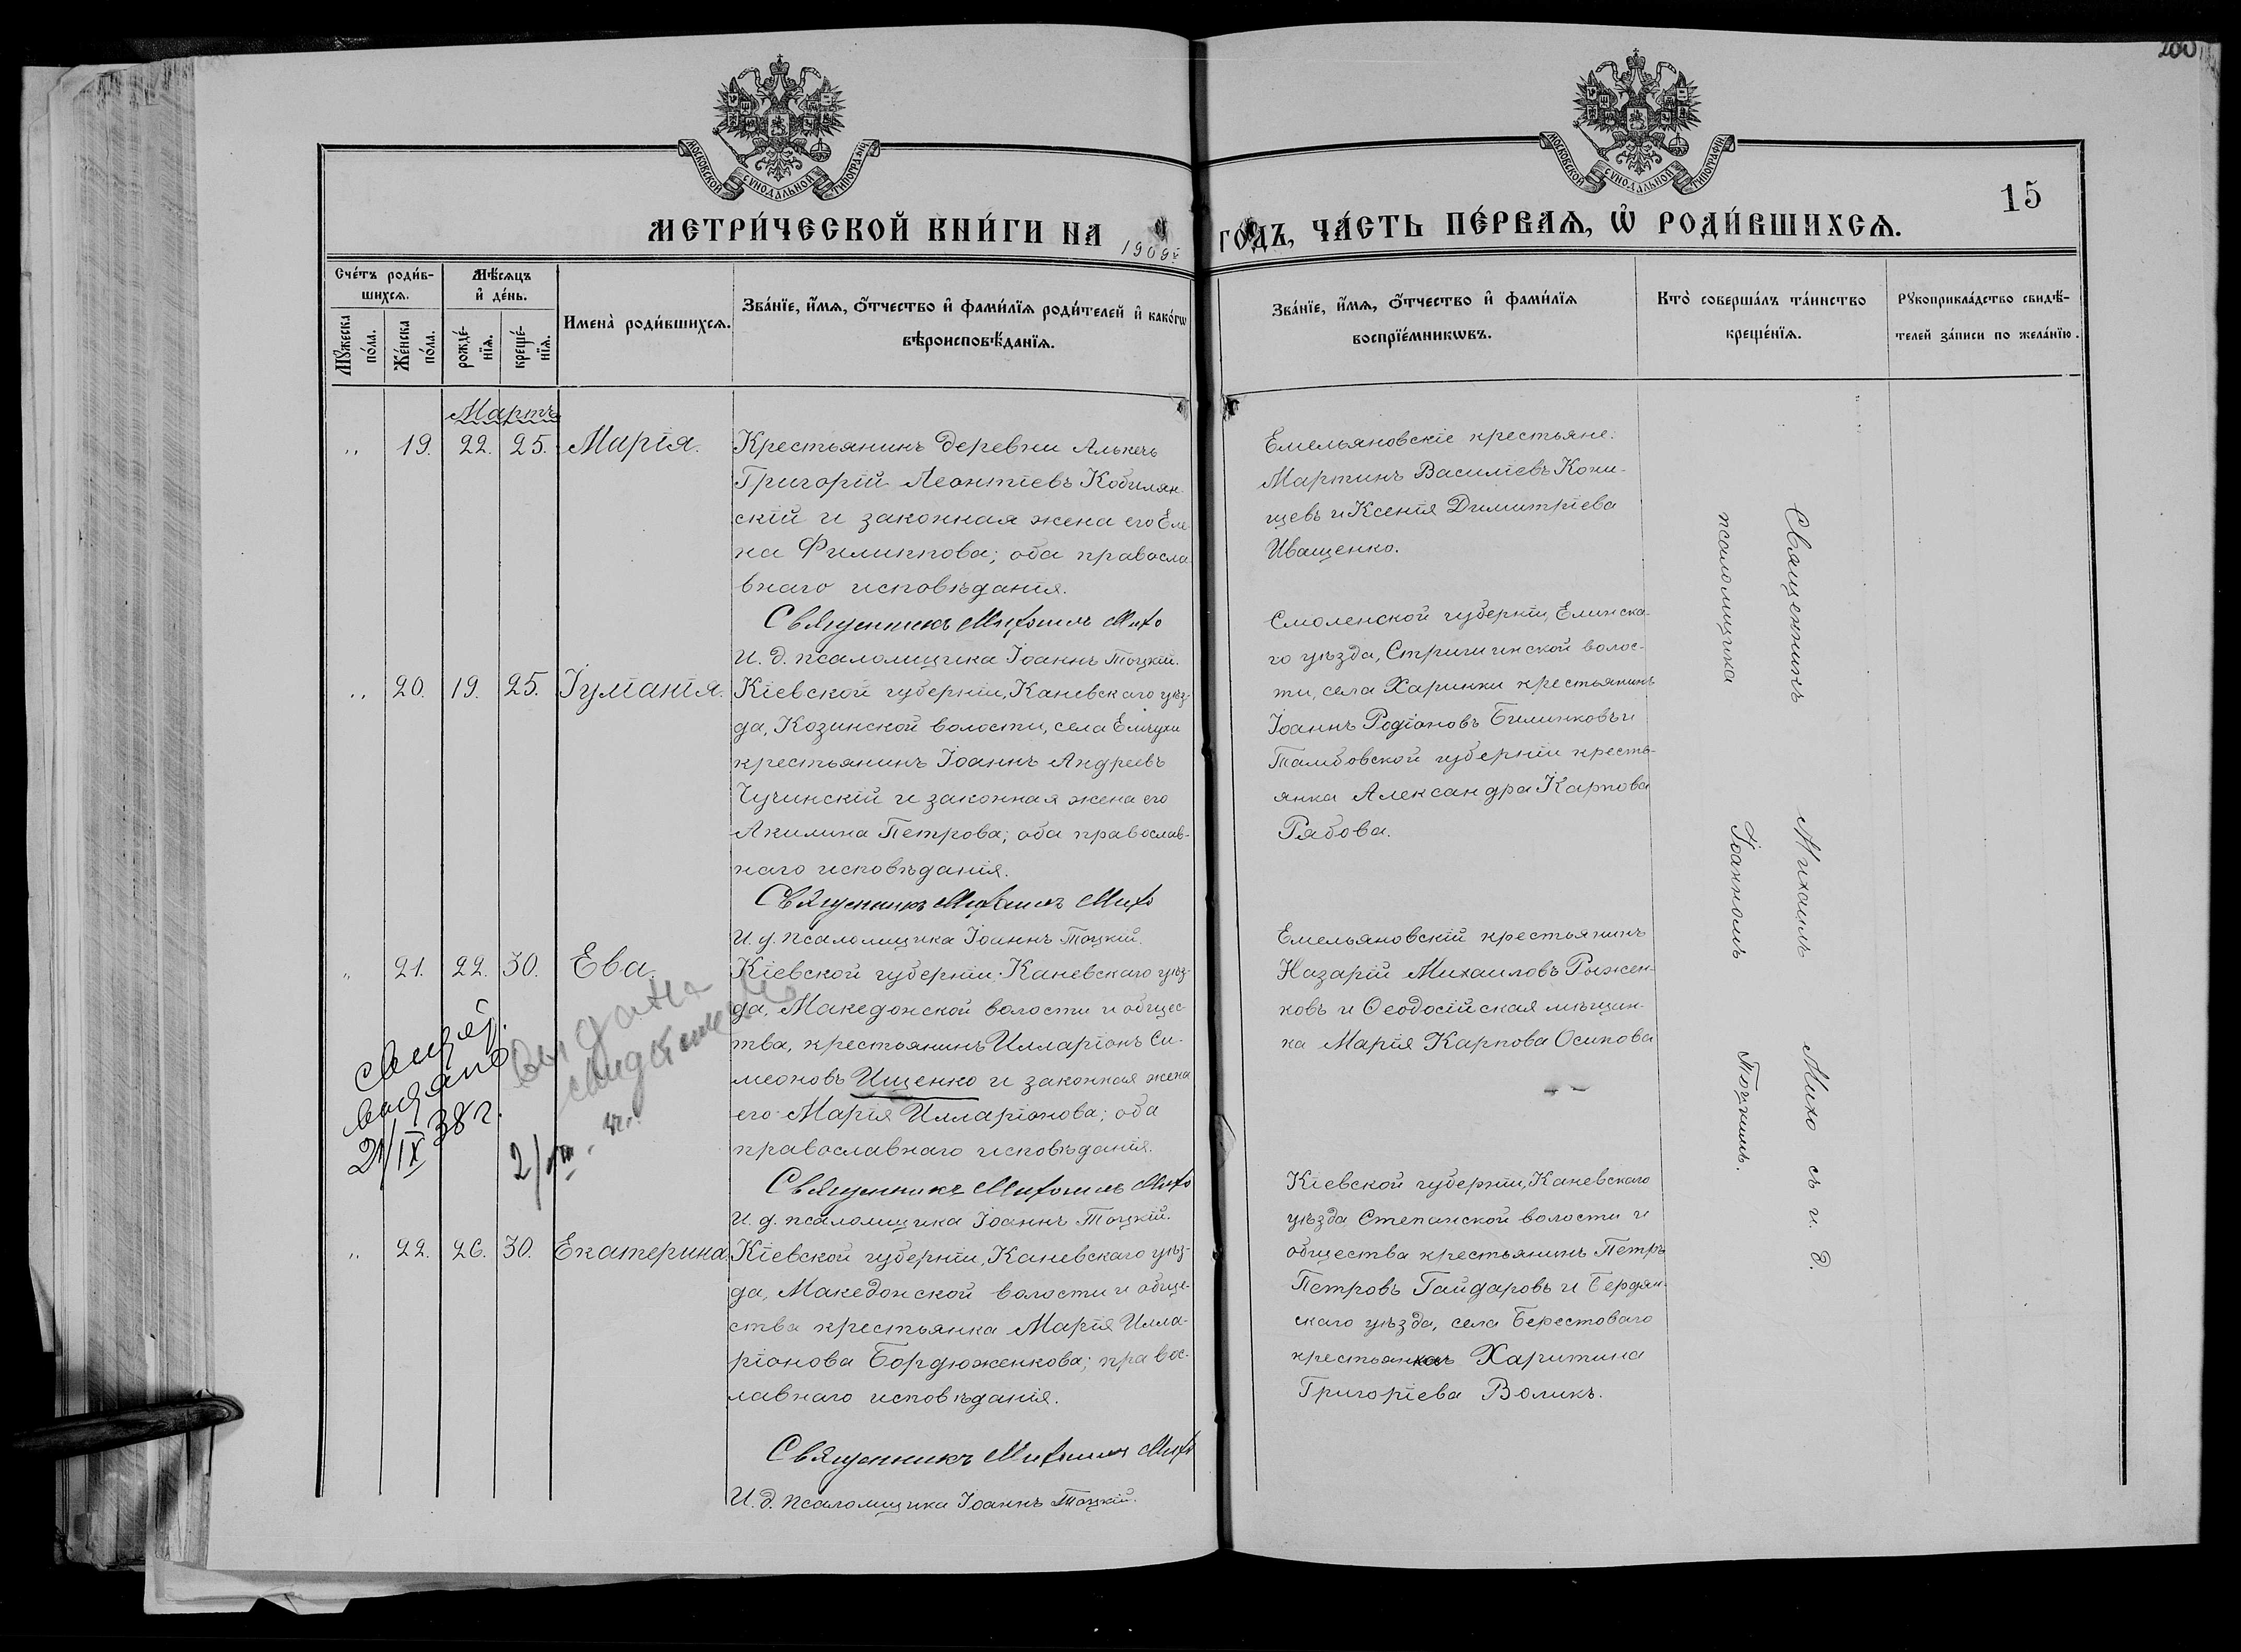 280
МОСКОВСКОЙ СѴНОДАЛЬНОЙ ТИПОГРАФІИ
МОСКОВСКОЙ СѴНОДАЛЬНОЙ ТИПОГРАФІИ
15
МЕТРИ́ЧЕСКОЙ КНИ́ГИ НА 1909 г. ГОДЪ, ЧА́СТЬ ПЕ́РВАѦ, Ѡ҆ РОДИ́ВШИХСѦ.
Сче́тъ роди́в-
шихсѧ.
Мѣ́сѧцъ
и҆ де́нь.
Мꙋжеска
по́ла.
Же́нска
по́ла.
рожде́-
нїѧ.
креще́-
нїѧ.
Имена̀ роди́вшихсѧ.
Зва́нїе, и҆́мѧ, ѻ҆́тчество и҆ фами́лїѧ роди́телей и҆ како́гѡ
вѣроисповѣ́данїѧ.
Зва́нїе, и҆́мѧ, ѻ҆́тчество и҆ фами́лїѧ
воспрїе́мникѡвъ.
Кто̀ соверша́лъ та́инство
креще́нїѧ.
Рꙋкоприкла́дство свидѣ́-
телей за́писи по жела́нїю.
Мартъ
„ 19. 22. 25. Марія.
Крестьянинъ деревни Алькечь
Григорій Леонтіевъ Кобилян-
скій и законная жена его Еле
на Филиппова; оба правосла
внаго исповѣданія.
Священникъ Михаилъ Михо
И. д. псаломщика Іоаннъ Тоцкій.
Емельяновскіе крестьяне:
Мартинъ Василіевъ Кони-
щевъ и Ксенія Димитріева
Иващенко.
„ 20. 19. 25. Іуліанія.
Кіевской губерніи, Каневскаго уѣз-
да, Козинской волости, села Емчухи
крестьянинъ Іоаннъ Андреевъ
Чучинскій и законная жена его
Акилина Петрова; оба православ-
наго исповѣданія.
Священникъ Михаилъ Михо
И. д. псаломщика Іоаннъ Тоцкій.
Смоленской губерніи, Елинска-
го уѣзда, Стригинской волос-
ти, села Харинки крестьянинъ
Іоаннъ Родіоновъ Билинковъ и
Тамбовской губерніи кресть-
янка Александра Карпова
Рябова.
„ 21. 22. 30. Ева.
Кіевской губерніи, Каневскаго уѣз-
да, Македонской волости и общес-
тва, крестьянинъ Илларіонъ Си-
меоновъ Ищенко и законная жена
его Марія Илларіонова; оба
православнаго исповѣданія.
Священникъ Михаилъ Михо
И. д. псаломщика Іоаннъ Тоцкій.
Емельяновскій крестьянинъ
Назарій Михаиловъ Рыжен-
ковъ и Ѳеодосійская мѣщан-
ка Марія Карпова Осипова
выдано
21/IX 38 г.
выдана
„ 22. 26. 30. Екатерина.
Кіевской губерніи, Каневскаго уѣз-
да, Македонской волости и обще-
ства крестьянка Марія Илла-
ріонова Бордюженкова; правос-
лавнаго исповѣданія.
Священникъ Михаилъ Михо
И. д. псаломщика Іоаннъ Тоцкій.
Кіевской губерніи, Каневскаго
уѣзда Степанской волости и
общества крестьянинъ Петръ
Петровъ Гайдаровъ и Бердян-
скаго уѣзда, села Берестоваго
крестьянка Харитина
Григоріева Воликъ.
Священникъ Михаилъ Михо съ и. д.
псаломщика Іоанномъ Тоцкимъ.